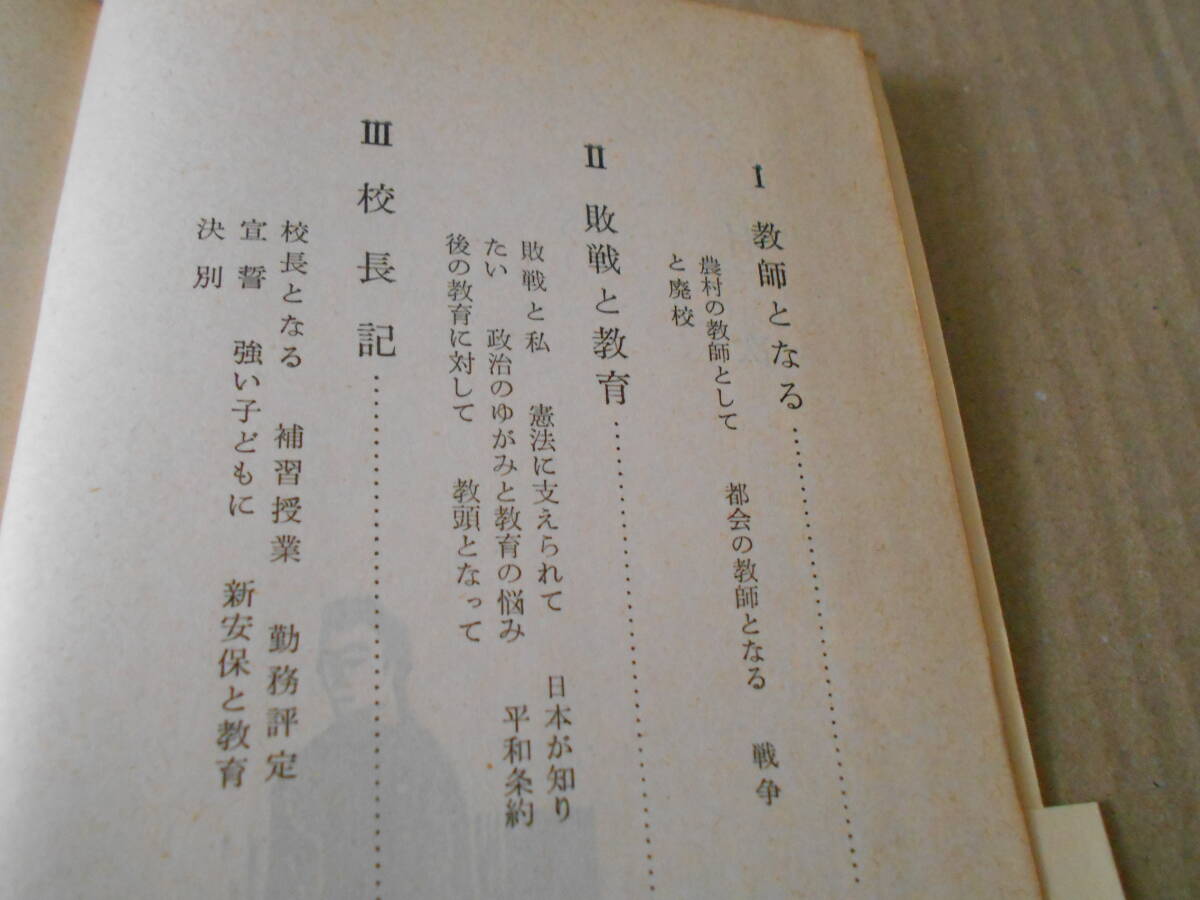 Ⅰ 教師となる……………………
農村の教師として 都会の教師となる 戦争
と廃校
Ⅱ 敗戦と教育……………………
敗戦と私 憲法に支えられて 日本が知り
たい 政治のゆがみと教育の悩み 平和条約
後の教育に対して 教頭となって
Ⅲ 校長記……………………
校長となる 補習授業 勤務評定
宣誓 強い子どもに 新安保と教育
決別